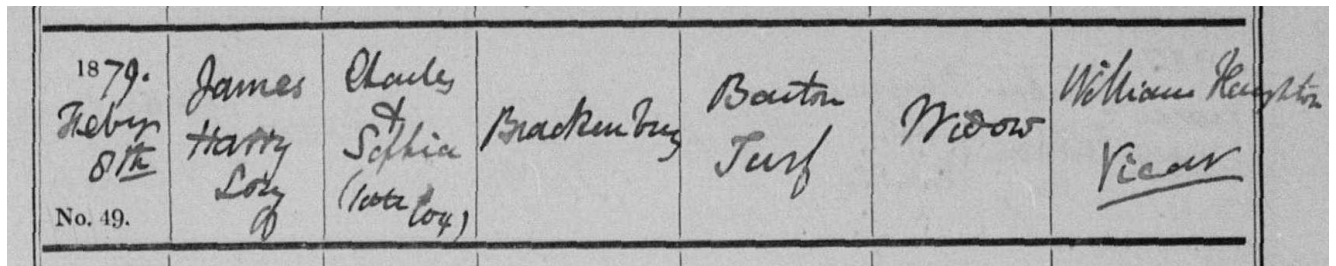 1879.
Feby
8th
No. 49.
James
Harry
Charles
&
Sophia
(late Cox)
Brackenbury
Barton
Turf
Widow
William Haughton
Vicar